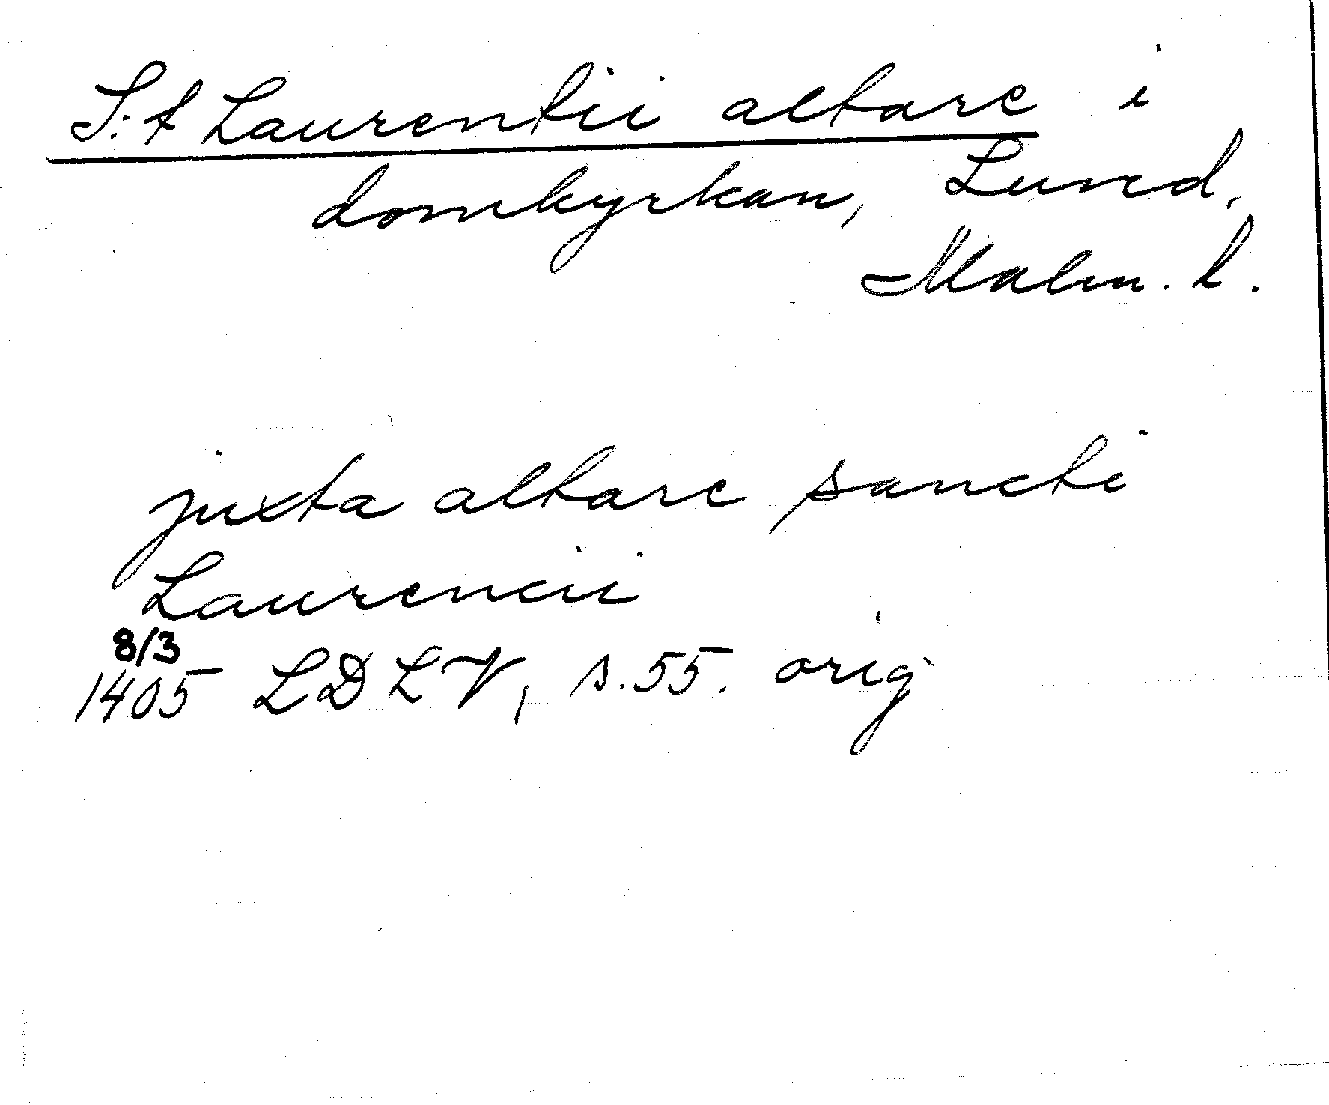 S:t Laurentii altare i
domkyrkan, Lund,
Malm. l.
juxta altare sancti
Laurencii
8/3
1405 LDLV, s. 55. orig